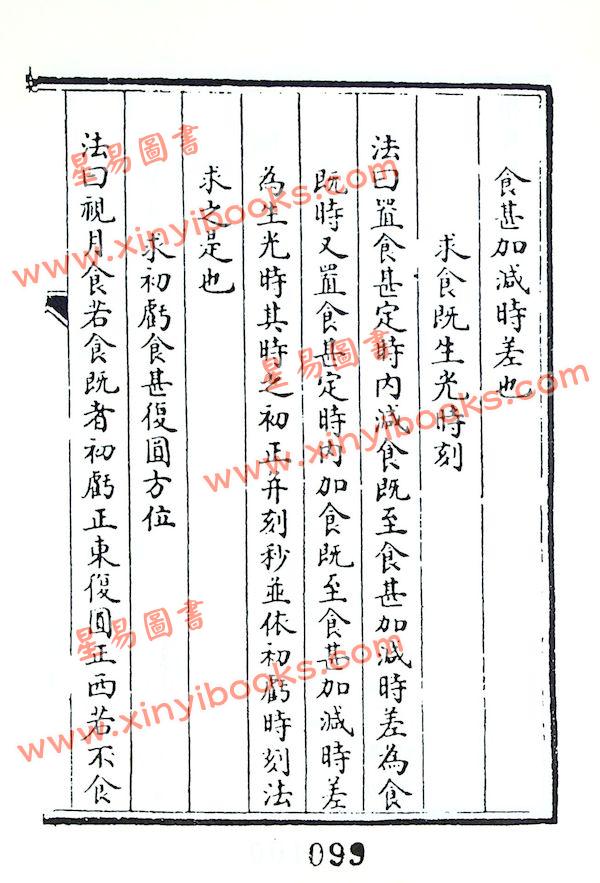 食甚加減時差也
求食既生光時刻
法曰置食甚定時內減食既至食甚加減時差為食
既時又置食甚定時內加食既至食甚加減時差
為生光時其時之初正并刻秒並依初虧時刻法
求之是也
求初虧食甚復圓方位
法曰視月食若食既者初虧正東復圓正西若不食
099
星易圖書
www.xinyibooks.com
星易圖書
www.xinyibooks.com
星易圖書
www.xinyibooks.com